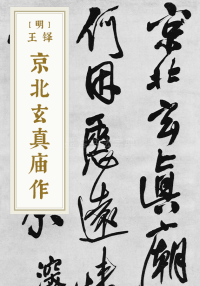 [明]
王铎
京北玄真庙作
京北玄真廟
何用遠情